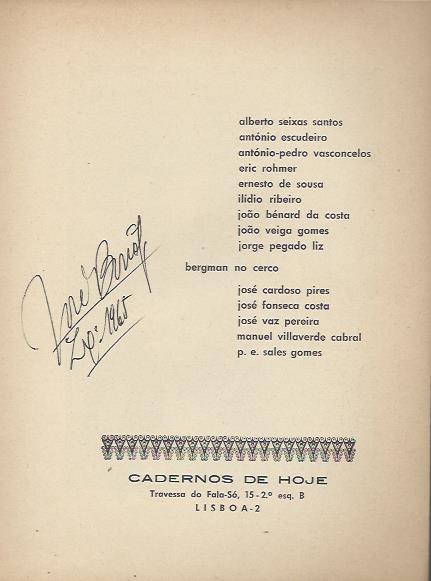 alberto seixas santos
antónio escudeiro
antónio-pedro vasconcelos
eric rohmer
ernesto de sousa
ilídio ribeiro
joão bénard da costa
joão veiga gomes
jorge pegado liz
bergman no cerco
josé cardoso pires
josé fonseca costa
josé vaz pereira
manuel villaverde cabral
p. e. sales gomes
José
Lxª. 1965
CADERNOS DE HOJE
Travessa do Fala-Só, 15-2.º esq. B
LISBOA-2